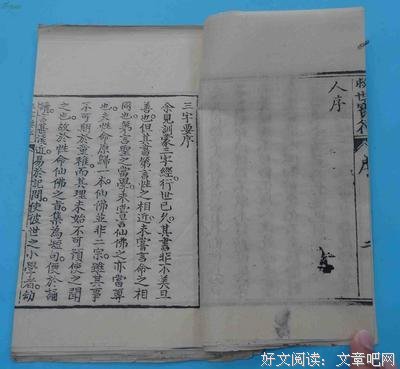 救世寶 序 二
人序
三字要序
余見訓蒙三字經行世已久。其書非不美且
善也。但其書第言性之相近未嘗言命之相
同也。第言聖之當學。未嘗言仙佛之亦當尊
也。夫性命原歸一本。仙佛並非二宗。雖其事
不可期於童稚而其理未始不可預使之聞
之也。故於性命仙佛之書。集為短句。便於誦
近易於記問。使彼世之小學者。幼
好文阅读：文章吧网